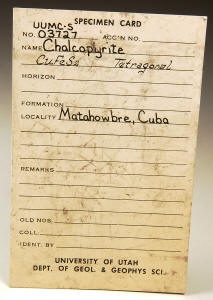 SPECIMEN CARD
UUMC-S
NO. 03727 ACC'N NO.
NAME Chalcopyrite
CuFeS2 Tetragonal
HORIZON
FORMATION
LOCALITY Matahowbre, Cuba
REMARKS
OLD NOS.
COLL.
IDENT. BY
UNIVERSITY OF UTAH
DEPT. OF GEOL. & GEOPHYS SCI.